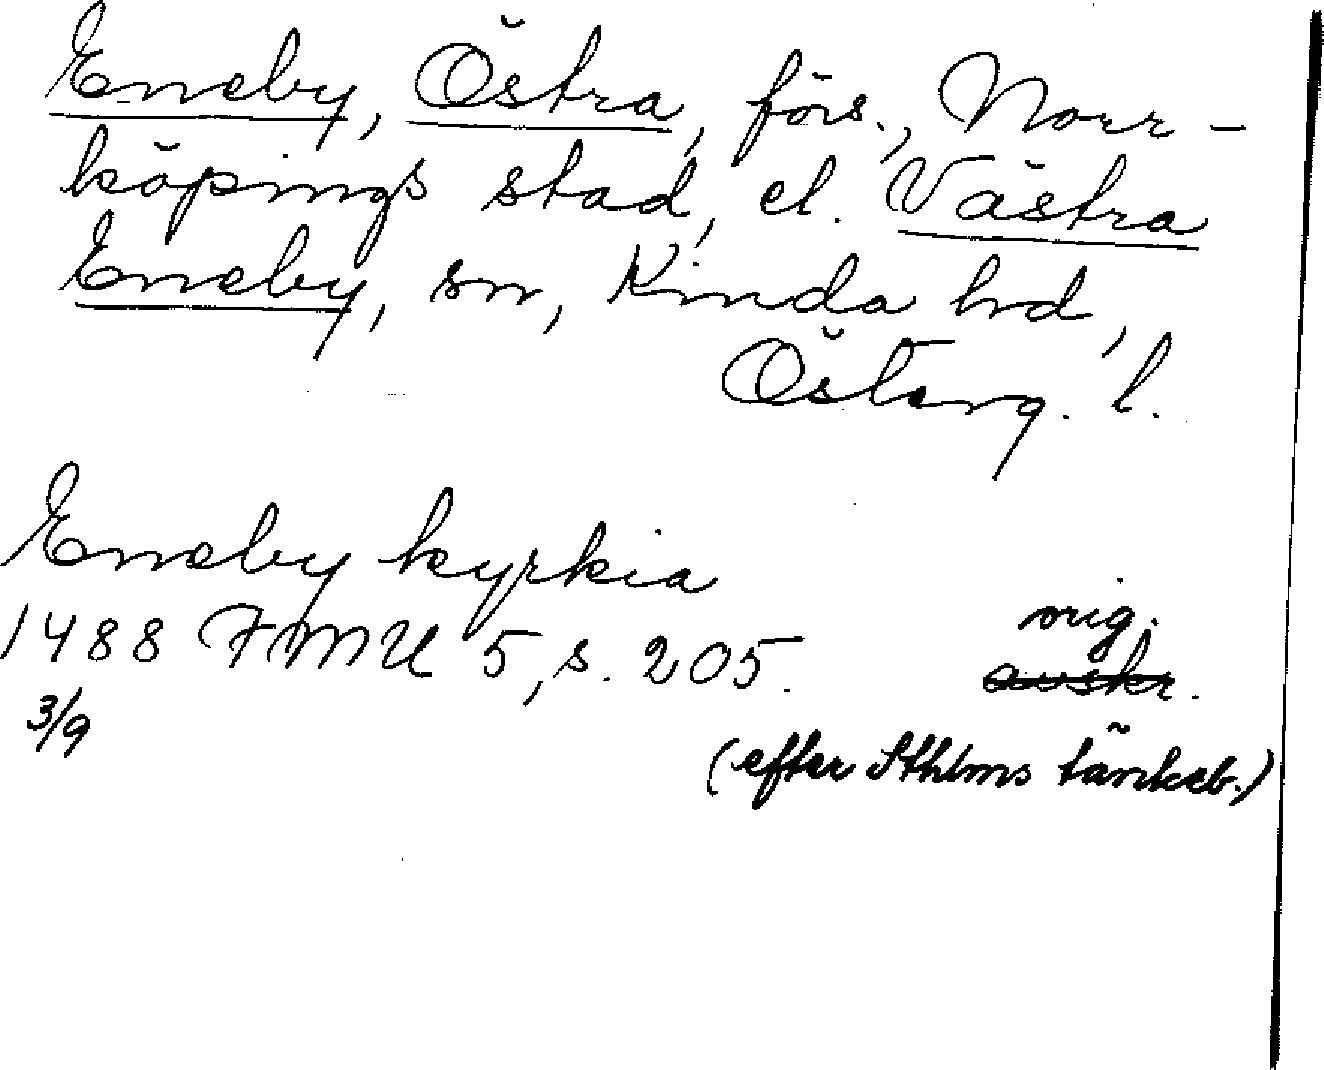 Eneby, Östra, förs., Norr-
köpings stad, el. Västra
Eneby, sn, Kinda hd,
Österg. l.
Eneby kyrkia
1488 FMU 5, s. 205.
orig.
avskr.
3/9
(efter Sthlms tänkeb.)